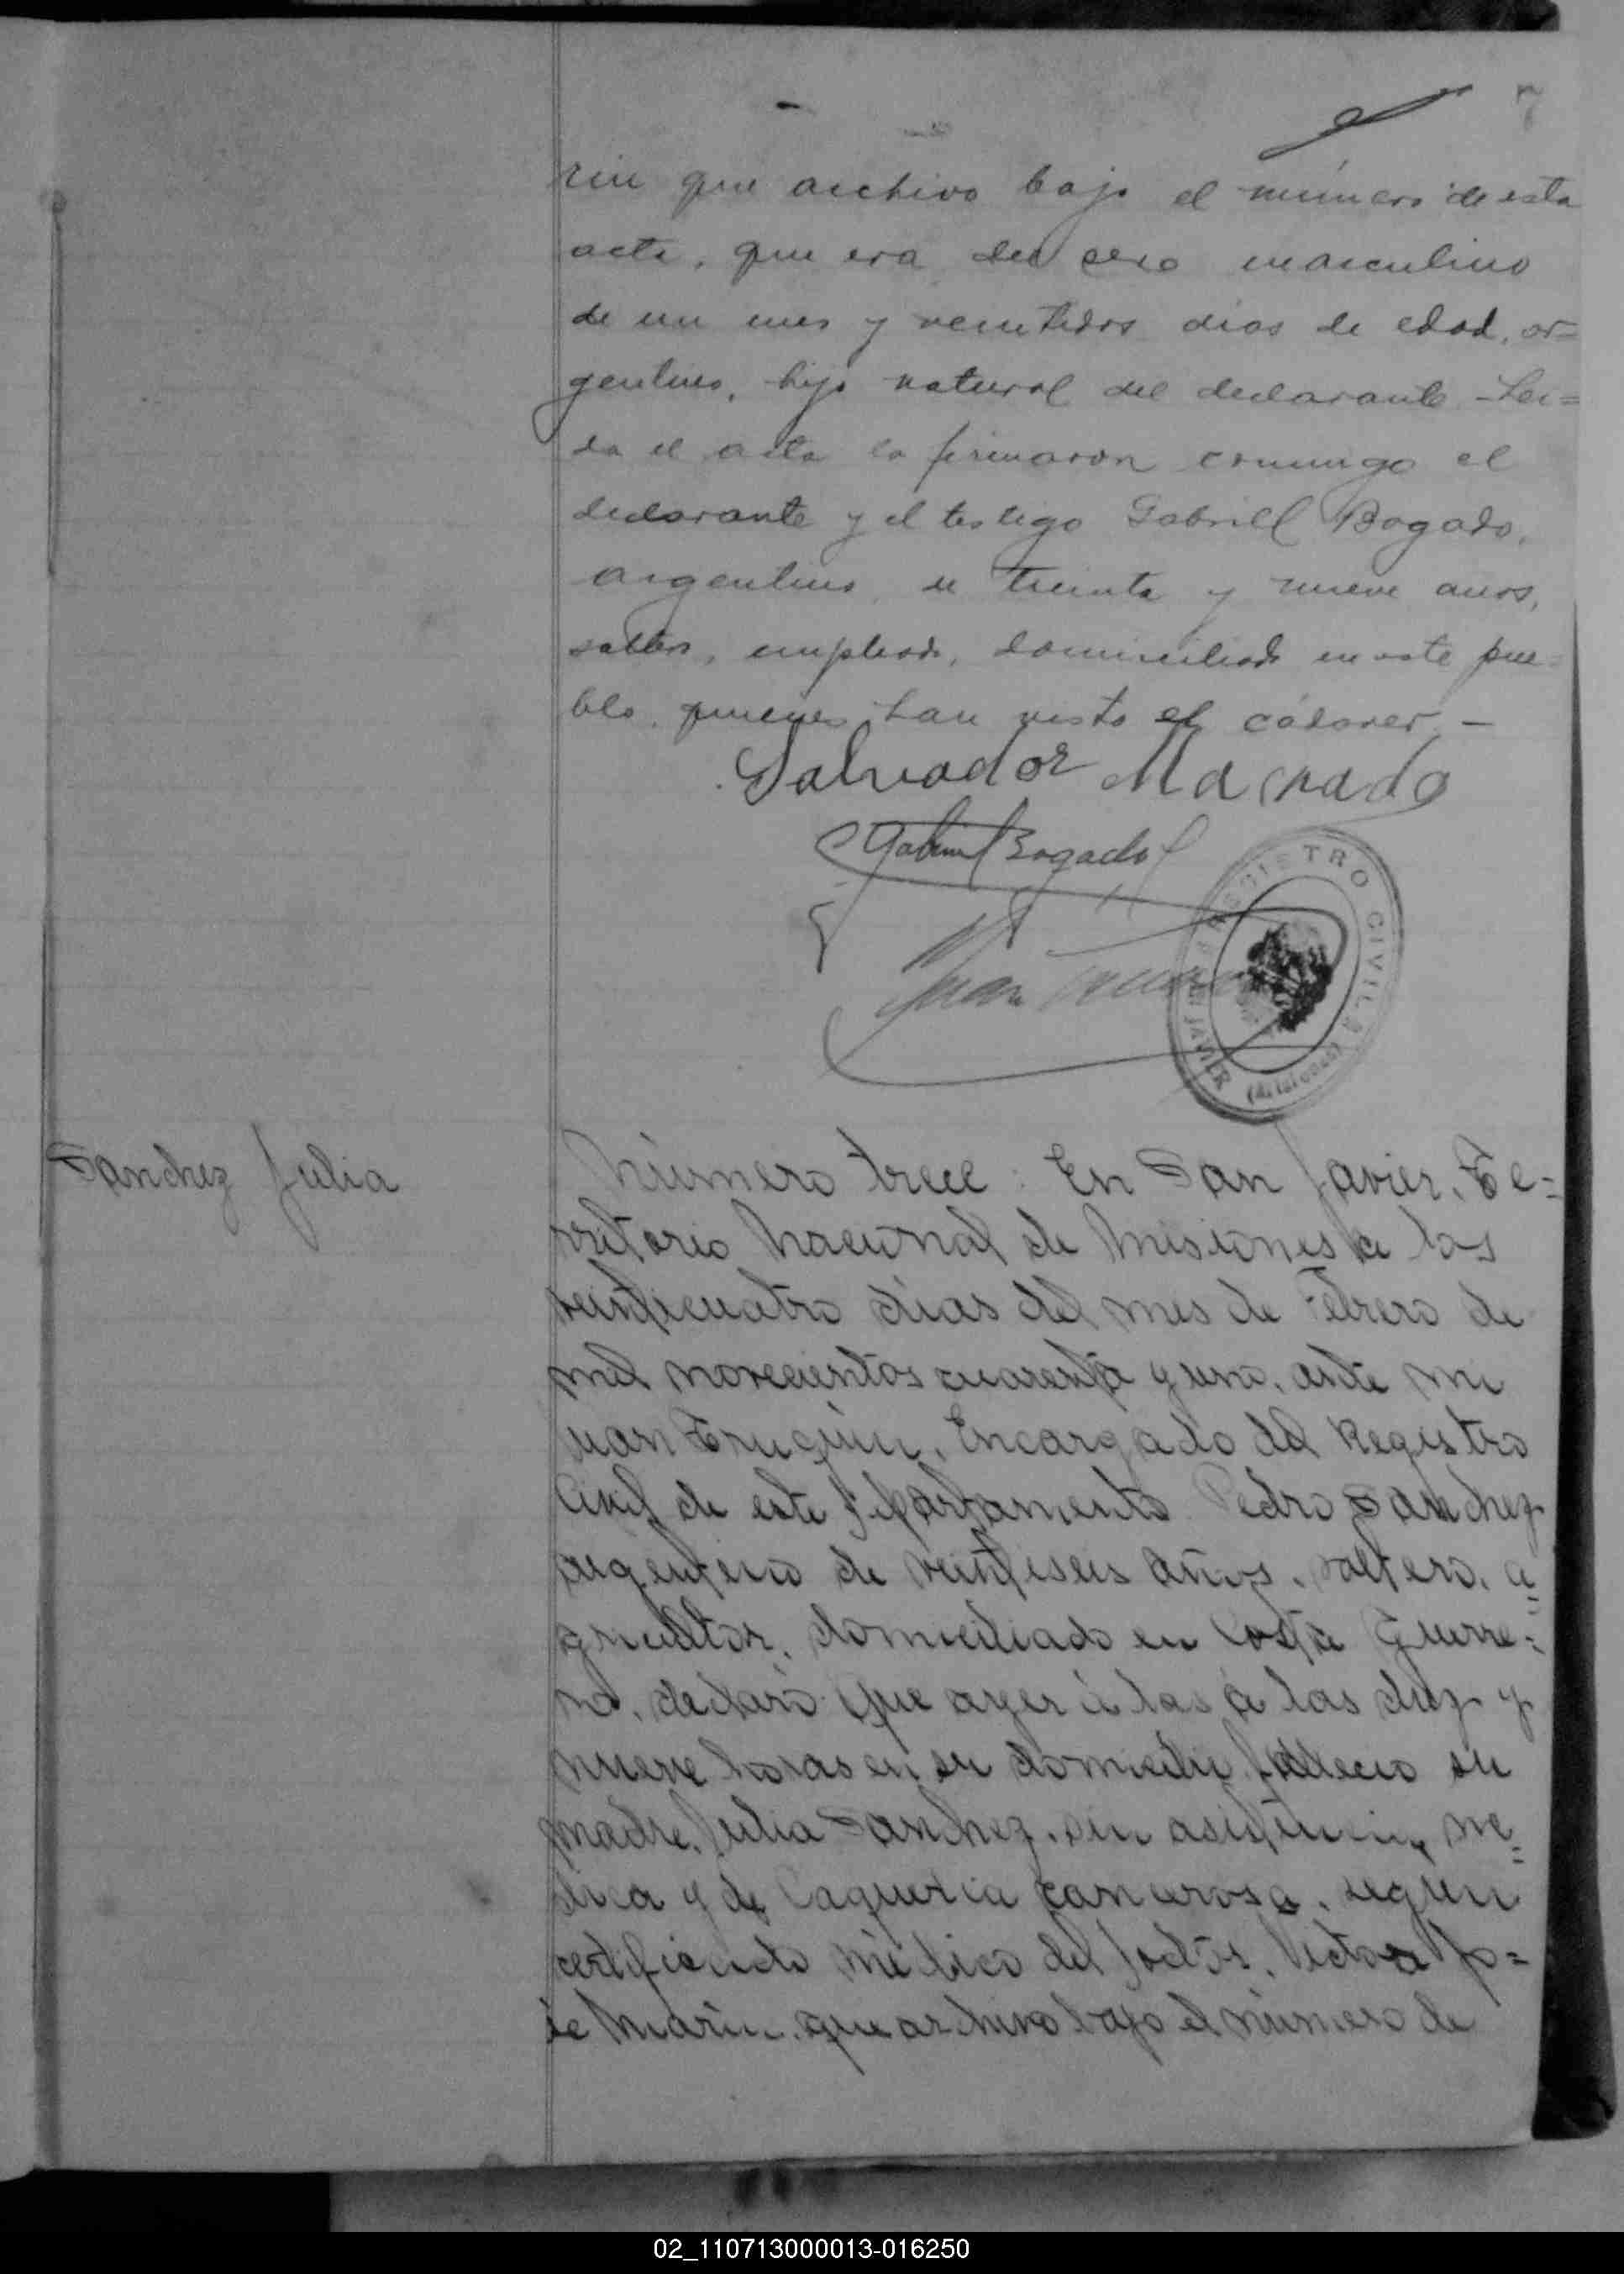 7
rin que archivo bajo el número de esta
acta, que era del sexo masculino
de un mes y veintidos dias de edad, ar=
gentino, hijo natural del declarante. - Lei=
da el acta la firmaron conmigo el
declarante y el testigo Gabriel Bogado,
argentino, de treinta y nueve años,
soltero, empleado, domiciliado en este pue=
blo, quienes han visto el cadaver. -
Salvador Machado
Gabriel Bogado
Juan
REGISTRO CIVIL
JAVIER
Sanchez Julia
Número trece: En San Javier, Te=
rritorio Nacional de Misiones a los
veinticuatro dias del mes de Febrero de
mil novecientos cuarenta y uno, ante mi
Juan Encargado del Registro
Civil de este Departamento Pedro Sanchez
argentino de veintiseis años, soltero, a=
gricultor, domiciliado en Costa Guerre=
ro, declaró: Que ayer á las á las diez y
nueve horas en su domicilio falleció su
madre Julia Sanchez, sin asistencia mé=
dica y de Caquexia cancerosa, según
certificado médico del Doctor, Victor
de Marin, que archivo bajo el número de
02_110713000013-016250